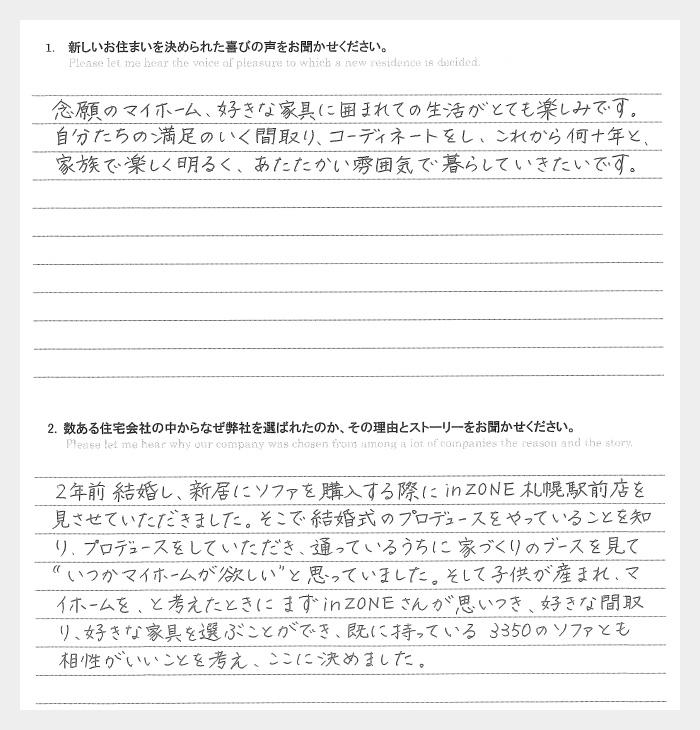 1. 新しいお住まいを決められた喜びの声をお聞かせください。
Please let me hear the voice of pleasure to which a new residence is decided.
念願のマイホーム、好きな家具に囲まれての生活がとても楽しみです。
自分たちの満足のいく間取り、コーディネートをし、これから何十年と、
家族で楽しく明るく、あたたかい雰囲気で暮らしていきたいです。
2. 数ある住宅会社の中からなぜ弊社を選ばれたのか、その理由とストーリーをお聞かせください。
Please let me hear why our company was chosen from among a lot of companies the reason and the story.
2年前結婚し、新居にソファを購入する際にinZONE札幌駅前店を
見させていただきました。そこで結婚式のプロデュースをやっていることを知
り、プロデュースをしていただき、通っているうちに家づくりのブースを見て
“いつかマイホームが欲しい”と思っていました。そして子供が産まれ、マ
イホームを、と考えたときにまずinZONEさんが思いつき、好きな間取
り、好きな家具を選ぶことができ、既に持っている3350のソファとも
相性がいいことを考え、ここに決めました。